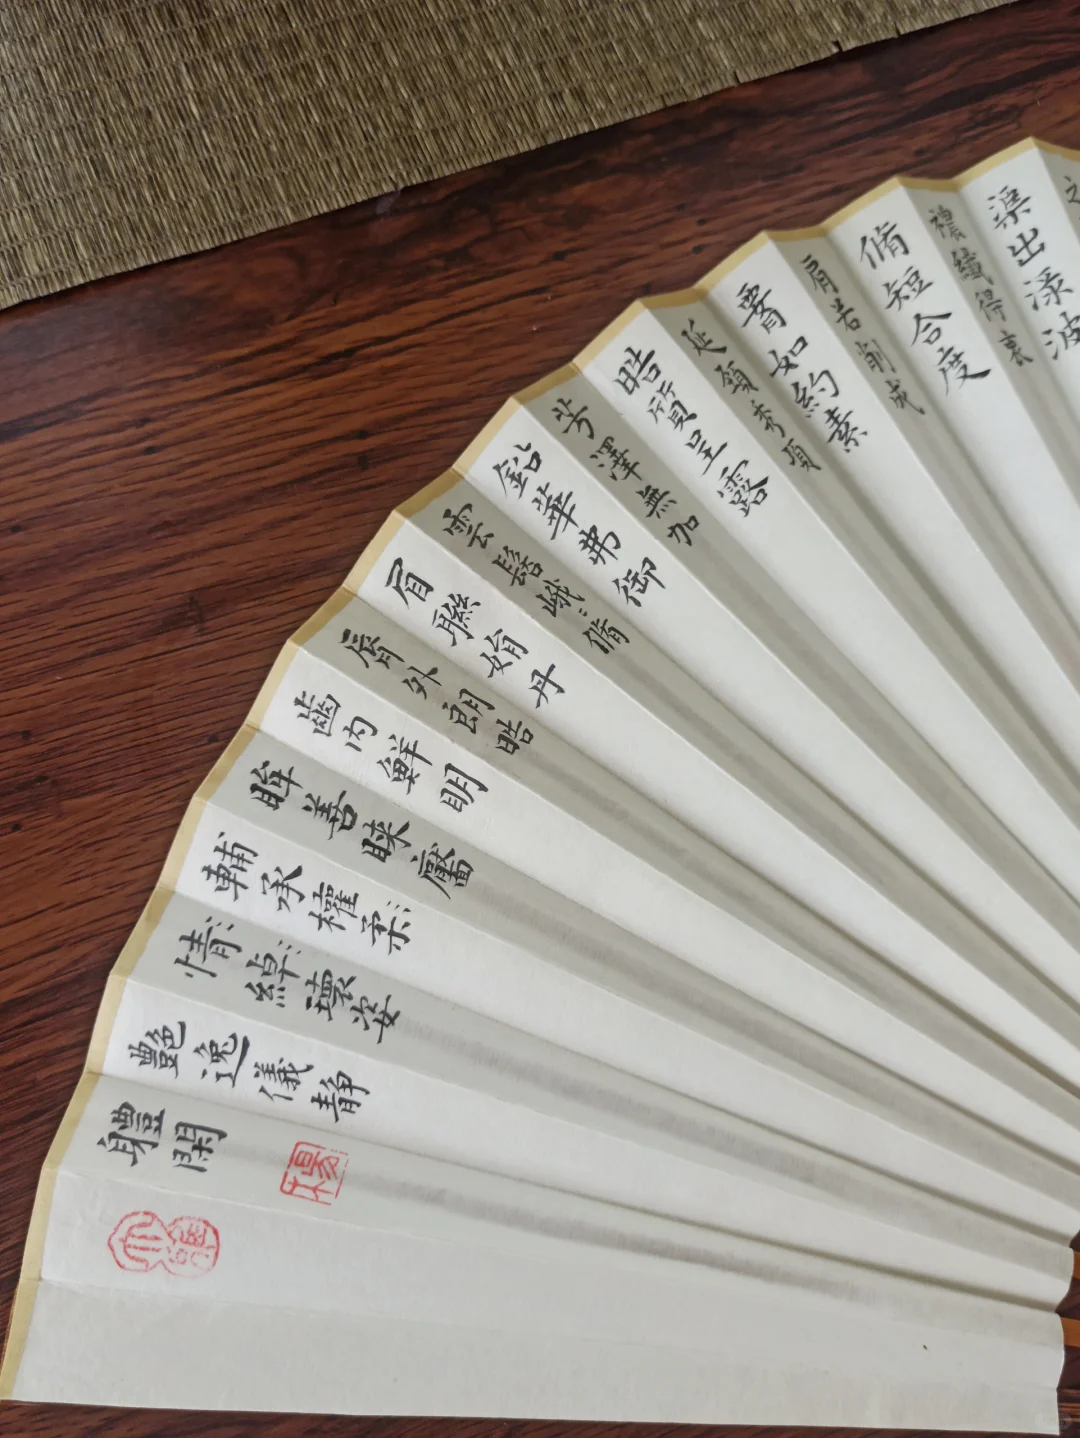 渠出渌波
穠纖得衷
脩短合度
肩若削成
要如約素
延頸秀項
晧質呈露
芳澤無加
鉛華弗御
雲髻峨〻脩
眉聯娟丹
脣外朗晧
齒內鮮明
眸善睞靨
輔承權柔
情綽瓌姿
艷逸儀靜
體閑